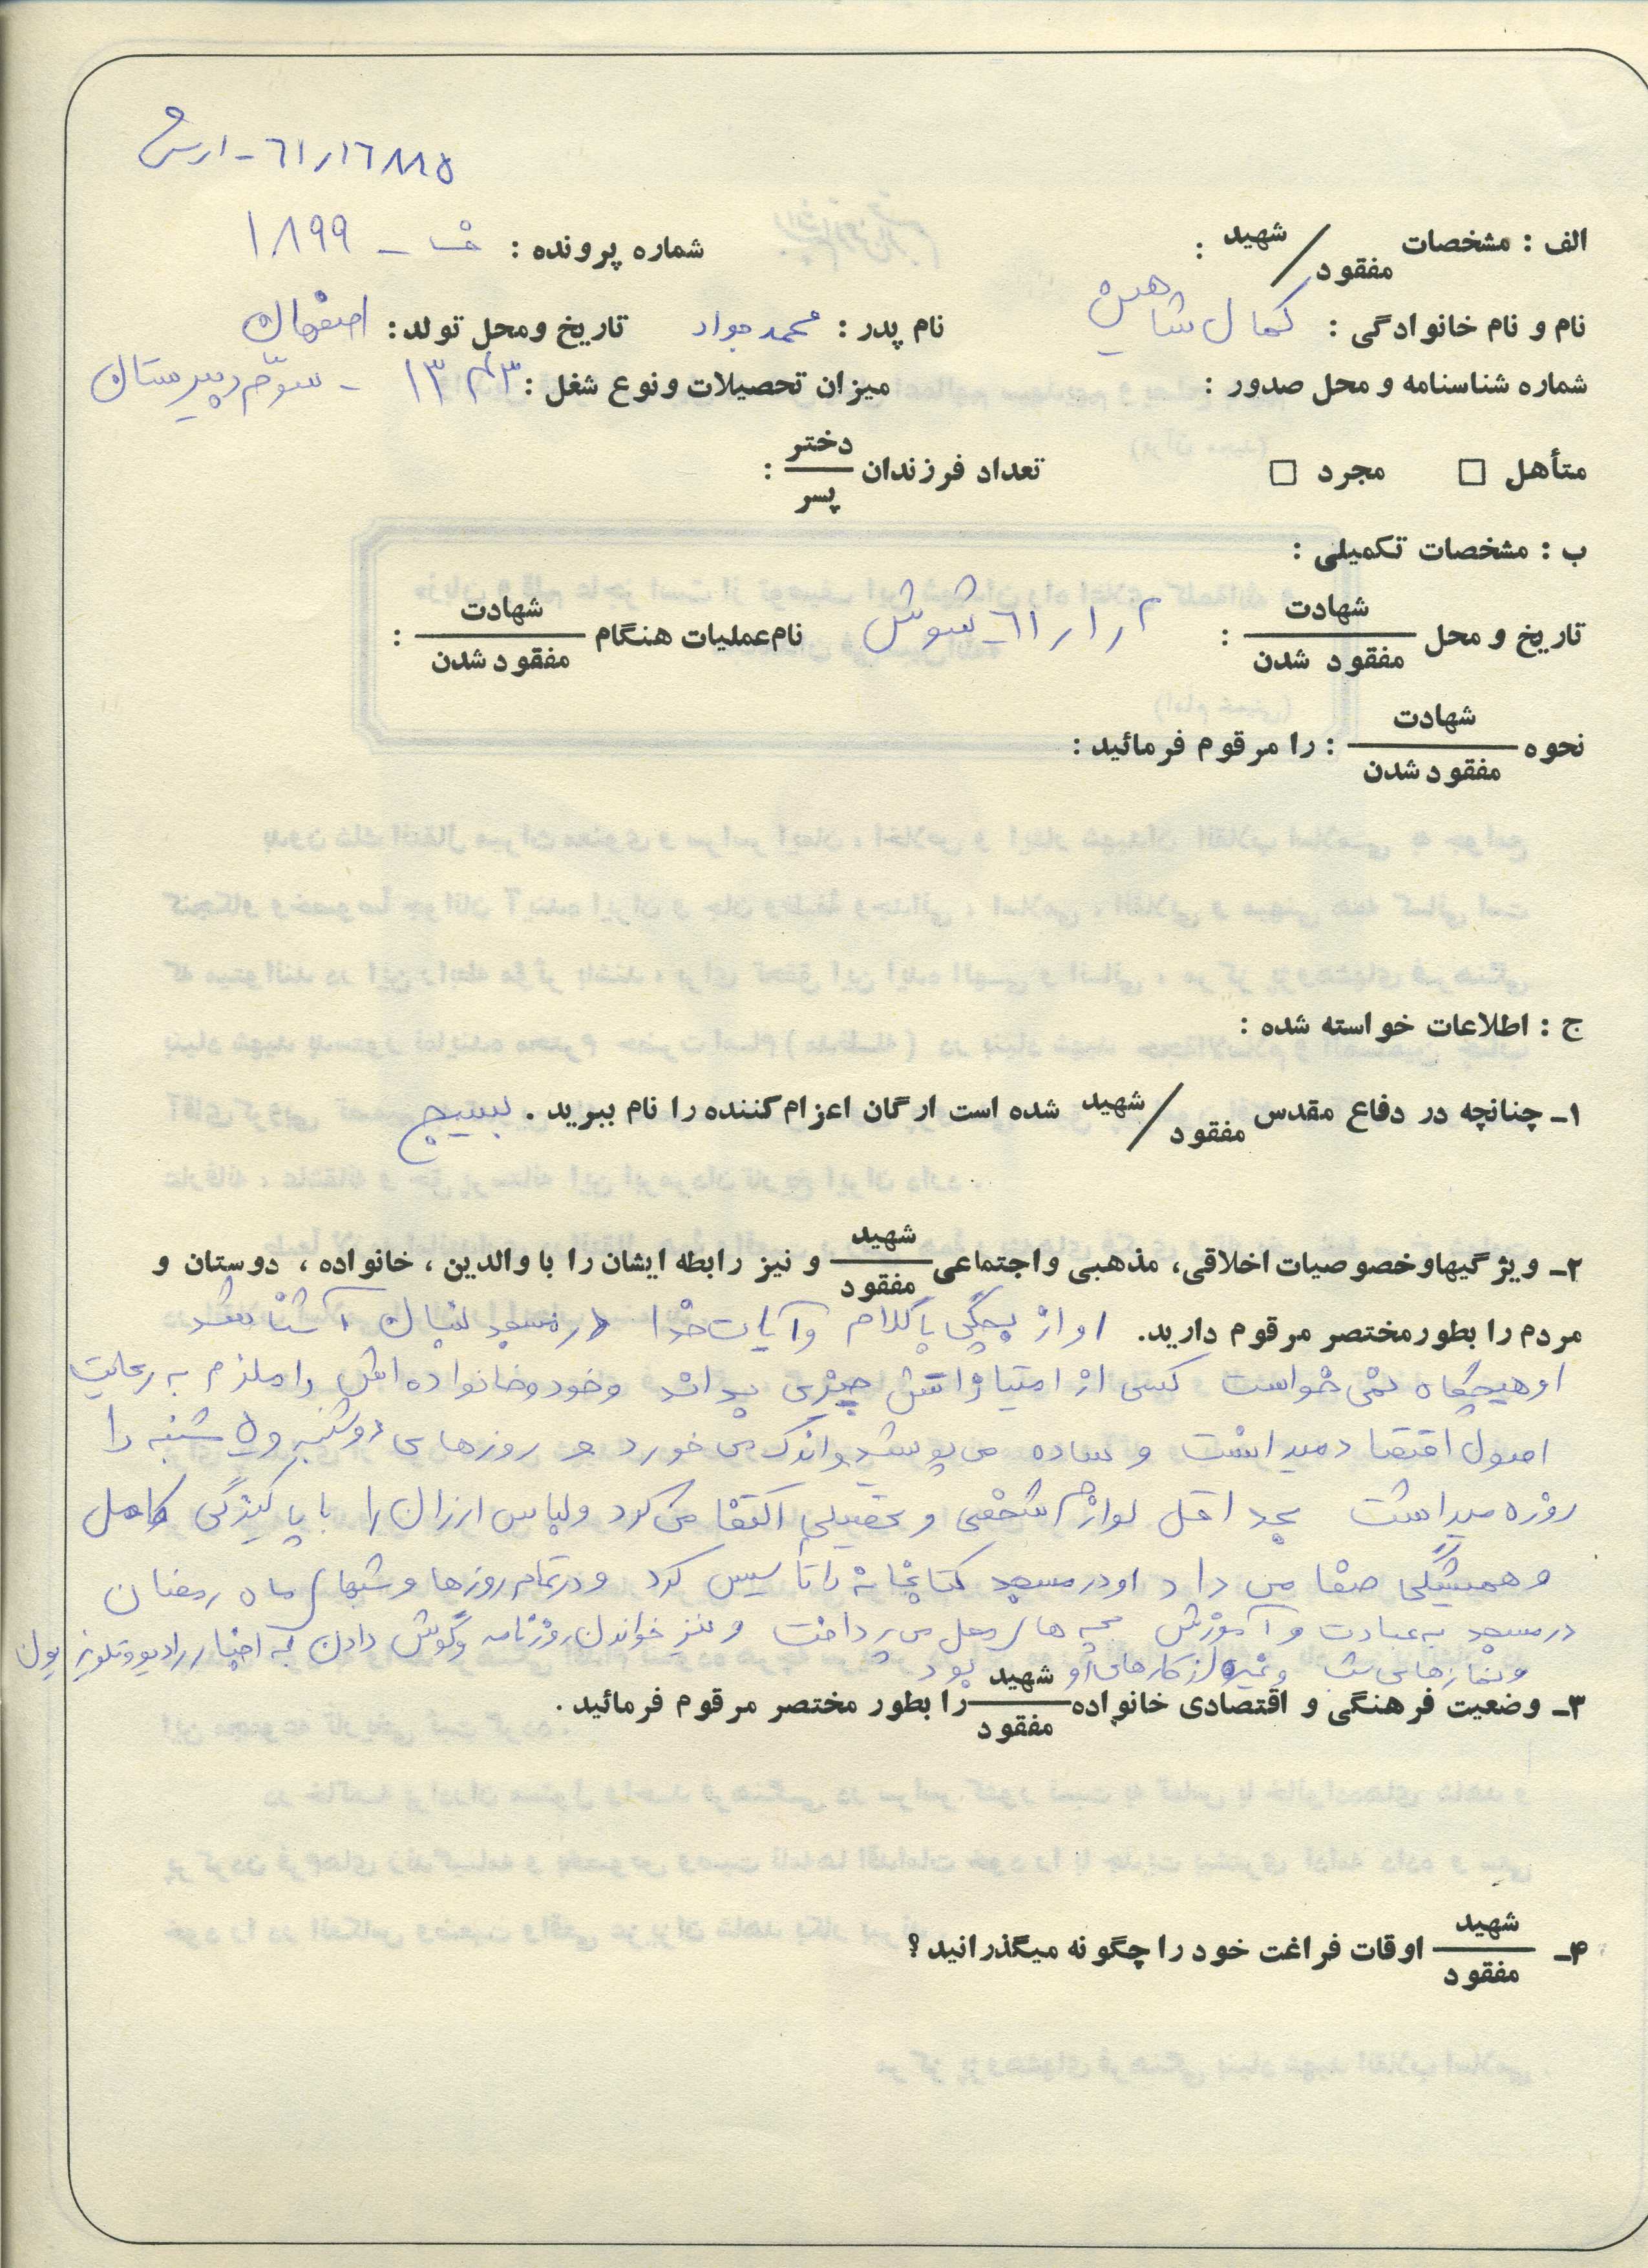 ۶۱/۱۶۸۸۵ -
الف : مشخصات شهید / مفقود : شماره پرونده : ف - ۱۸۹۹
نام و نام خانوادگی : کمال شاهین نام پدر : محمدجواد تاریخ ومحل تولد : اصفهان
شماره شناسنامه و محل صدور : میزان تحصیلات ونوع شغل : ۱۳۴۳ - سوّم دبیرستان
متأهل □ مجرد □ تعداد فرزندان دختر / پسر :
ب : مشخصات تکمیلی :
تاریخ و محل شهادت / مفقود شدن : ۲ ر ۱ ر ۶۱ - شوش نام عملیات هنگام شهادت / مفقود شدن :
نحوه شهادت / مفقود شدن : را مرقوم فرمائید :
ج : اطلاعات خواسته شده :
۱ـ چنانچه در دفاع مقدس شهید / مفقود شده است ارگان اعزام کننده را نام ببرید . بسیج
۲ـ ویژگیها و خصوصیات اخلاقی، مذهبی و اجتماعی شهید / مفقود و نیز رابطه ایشان را با والدین ، خانواده ، دوستان و
مردم را بطور مختصر مرقوم دارید. او از بچگی با کلام و آیات خدا در مسجد لنبان آشنا شد
او هیچگاه نمی خواست کسی از امتیازاتش چیزی بداند وخود وخانواده اش را ملزم به رعایت
اصول اقتصاد میدانست و ساده می پوشید و اندک می خورد و روزهای دوشنبه و ۵ شنبه را
روزه میداشت بحداقل لوازم شخصی و تحصیلی اکتفا می کرد و لباس ارزان را با پاکیزگی کامل
و همیشگی صفا می داد او در مسجد کتابخانه را تأسیس کرد و در تمام روزها و شبهای ماه رمضان
در مسجد به عبادت و آموزش بچه های محل می پرداخت و نیز خواندن روزنامه و گوش دادن به اخبار رادیو و تلویزیون
و نمازهای شب و غیره از کارهای او بود
۳ـ وضعیت فرهنگی و اقتصادی خانواده شهید / مفقود را بطور مختصر مرقوم فرمائید .
۴ـ شهید / مفقود اوقات فراغت خود را چگونه میگذرانید ؟